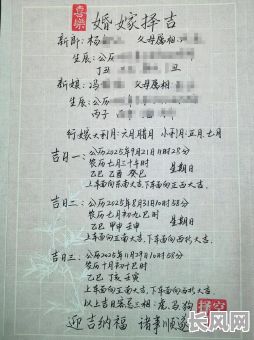 喜樂
婚嫁择吉
新郎:杨 父母属相:
生辰:公历
丁丑 丑
新娘:冯 父母属相
生辰:公历
丙子
行嫁大利月:六月腊月 小利月:正月,七月
吉日一:公历2025年9月21日11时28分
农历七月三十午时 星期日
乙巳 乙酉 癸巳
上车面向东南大吉,下车面向正西大吉
吉日二:公历2025年8月31日10时58分
农历七月初九巳时 星期日
乙巳 甲申 壬申
上车面向正南大吉,下车面向西北大吉
吉日三:公历2025年11月29日10时58分
农历十月初十巳时
乙巳 丁亥 壬寅
上车面向正南大吉,下车面向西北大吉
以上吉日客忌三相:虎,马,狗
迎吉纳福 诸事顺遂
长风网